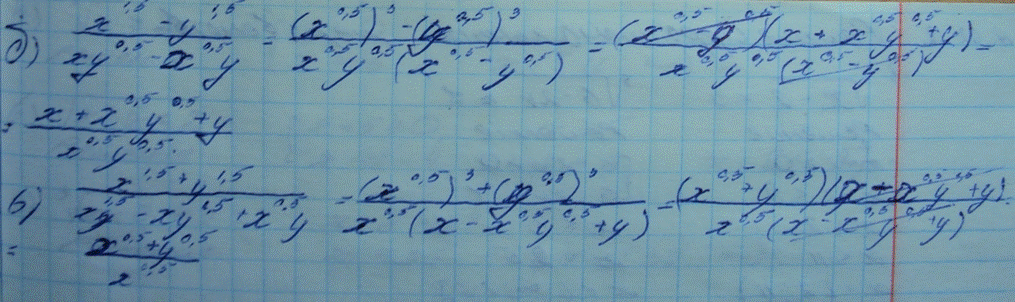 б) (x^1,5 - y^1,5)/(xy^0,5 - x^0,5 y) = ((x^0,5)^3 - (y^0,5)^3)/(x^0,5 y^0,5 (x^0,5 - y^0,5)) = ((x^0,5 - y^0,5)(x + x^0,5 y^0,5 + y))/(x^0,5 y^0,5 (x^0,5 - y^0,5)) =
= (x + x^0,5 y^0,5 + y)/(x^0,5 y^0,5)
в) (x^1,5 + y^1,5)/(x^1,5 - xy^0,5 + x^0,5 y) = ((x^0,5)^3 + (y^0,5)^3)/(x^0,5 (x - x^0,5 y^0,5 + y)) = ((x^0,5 + y^0,5)(x - x^0,5 y^0,5 + y))/(x^0,5 (x - x^0,5 y^0,5 + y)) =
= (x^0,5 + y^0,5)/(x^0,5)